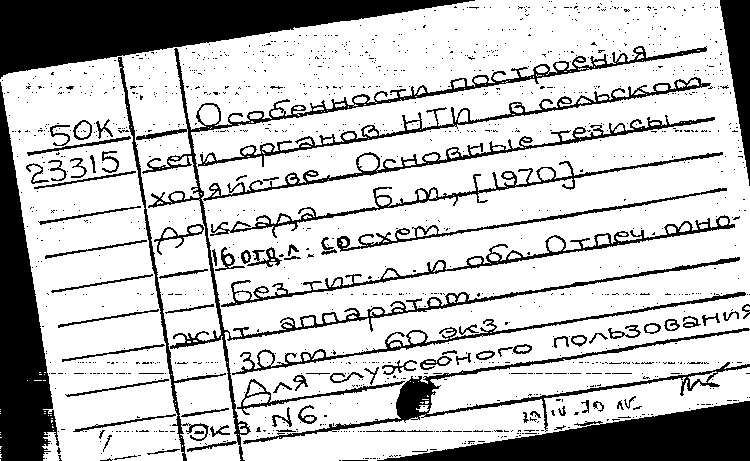 Особенности построения
50К сети органов НТИ в сельском
23315 хозяйстве. Основные тезисы
доклада. Б.м., [1970].
16 отд.л. со схем.
Без тит.л. и обл. Отпеч. мно-
жит. аппаратом.
30 см. 60 экз.
Для служебного пользования
Экз. N6.